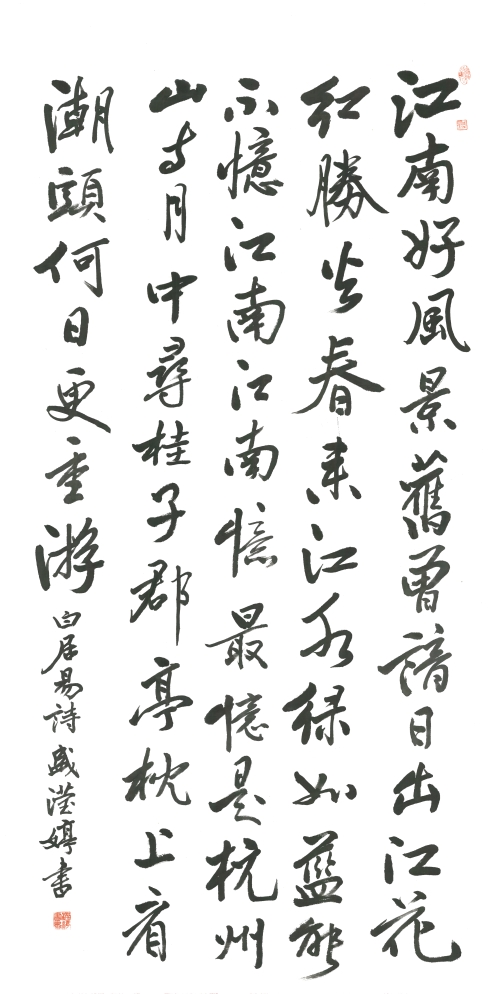 江南好風景舊曾諳日出江花
紅勝火春来江水緑如藍能
不憶江南江南憶最憶是杭州
山寺月中尋桂子郡亭枕上看
潮頭何日更重游
白居易詩盛滢婷書